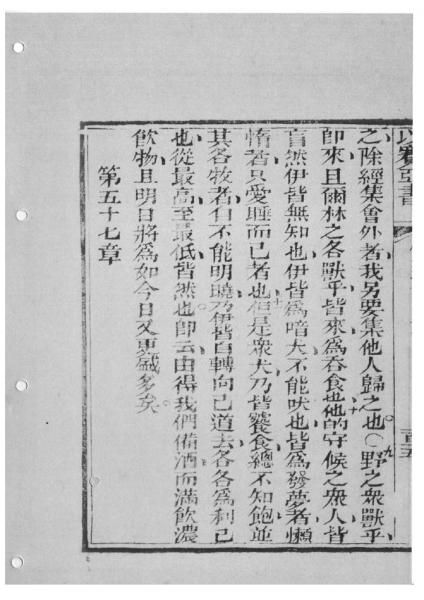 以賽亞書
之除經集會外者我另要集他人歸之也○九野之衆獸乎
即來且爾林之各獸乎皆來爲吞食也十他的守候之衆人皆
盲然伊皆無知也伊皆爲啞犬不能吠也皆爲發夢者懶
惰者只愛睡而已者也十一但是衆犬乃皆饕食總不知飽並
其各牧者自不能明曉乃伊皆自轉向己道去各各爲利己
也從最高至最低皆然也即云由得我們備酒而滿飲濃
飲物且明日將爲如今日又更盛多矣
第五十七章